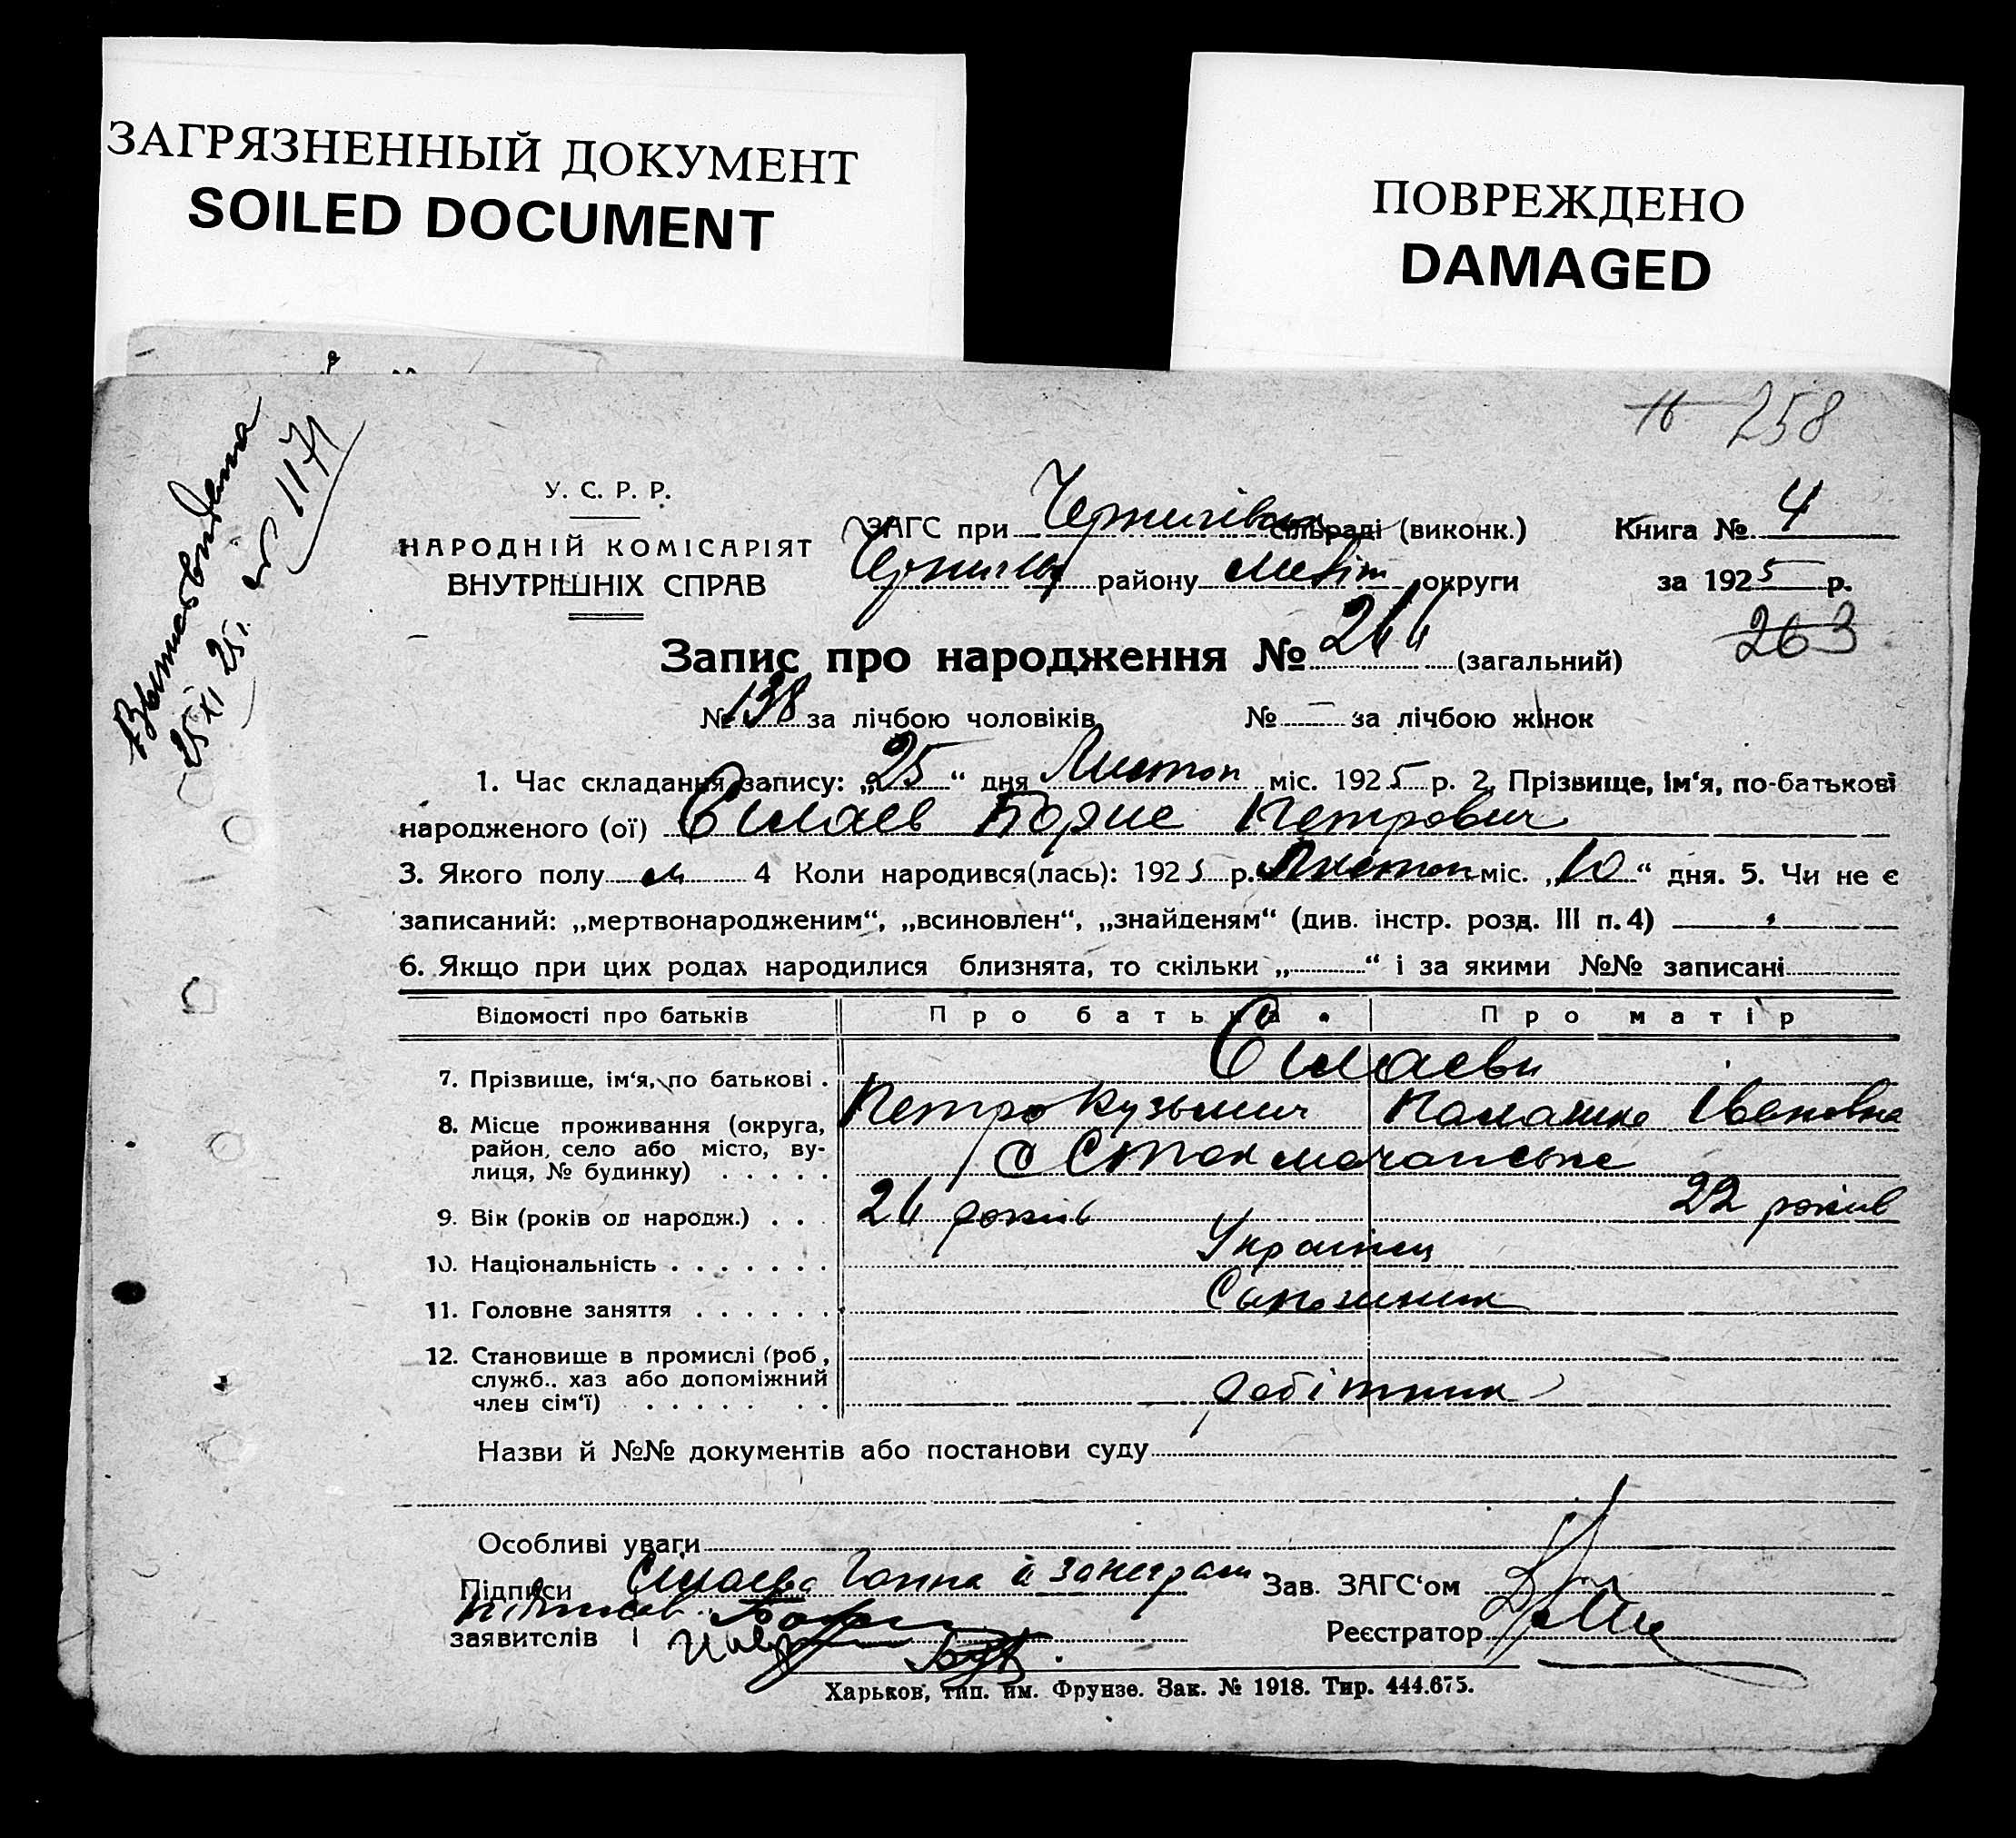 ЗАГРЯЗНЕННЫЙ ДОКУМЕНТ
SOILED DOCUMENT
ПОВРЕЖДЕНО
DAMAGED
16 258
25 XI 25 г. № 1171
У. С. Р. Р.
НАРОДНІЙ КОМІСАРІЯТ
ВНУТРІШНІХ СПРАВ
ЗАГС при сільраді (виконк.) Книга № 4
району Меліт округи за 1925 р.
263
Запис про народження № 266 (загальний)
№ 138 за лічбою чоловіків № — за лічбою жінок
1. Час складання запису: „25“ дня Листоп міс. 1925 р. 2. Прізвище, ім‘я, по-батькові
народженого (ої) Силаев Борис Петрович
3. Якого полу м 4 Коли народився(лась): 1925 р. Листоп міс. „10“ дня. 5. Чи не є
записаний: „мертвонародженим“, „всиновлен“, „знайденям“ (див. інстр. розд. III п. 4)
6. Якщо при цих родах народилися близнята, то скільки „ “ і за якими №№ записані
Відомості про батьків Про батька Про матір
Силаеви
7. Прізвище, ім‘я, по батькові . Петро Кузьмич Палашка Івановна
8. Місце проживання (округа,
район, село або місто, ву-
лиця, № будинку) . . . . .
9. Вік (років од народж.) . . . 26 років 22 років
10. Національність . . . . . . . Українец
11. Головне заняття . . . . . . Сапожник
12. Становище в промислі (роб,
служб.. хаз або допоміжний
член сім‘ї) . . . . . . . робітник
Назви й №№ документів або постанови суду
Особливі уваги
Підписи Силаева Ганна Зав. ЗАГС‘ом
заявителів Реєстратор
Харьков, тип. им. Фрунзе. Зак. № 1918. Тир. 444.675.